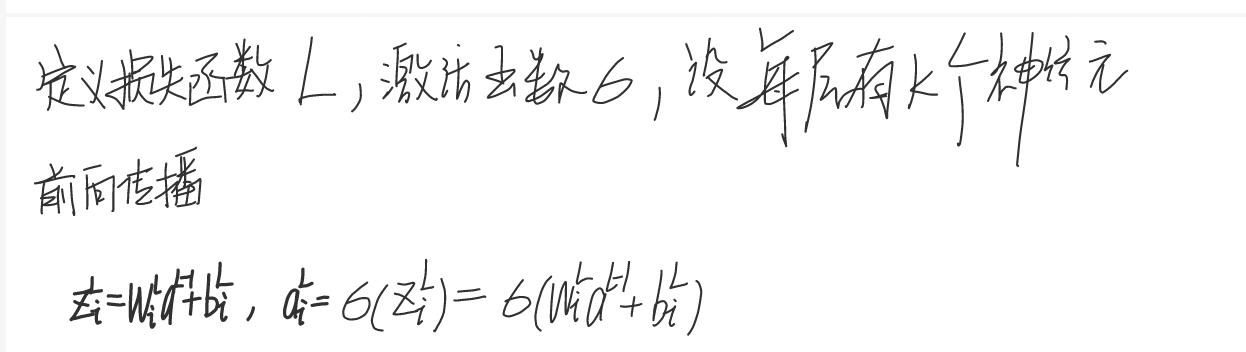 定义损失函数 L，激活函数 σ，设每层有 k 个神经元
前向传播
z_i^L = W_i^L a^{L-1} + b_i^L， a_i^L = σ(z_i^L) = σ(W_i^L a^{L-1} + b_i^L)